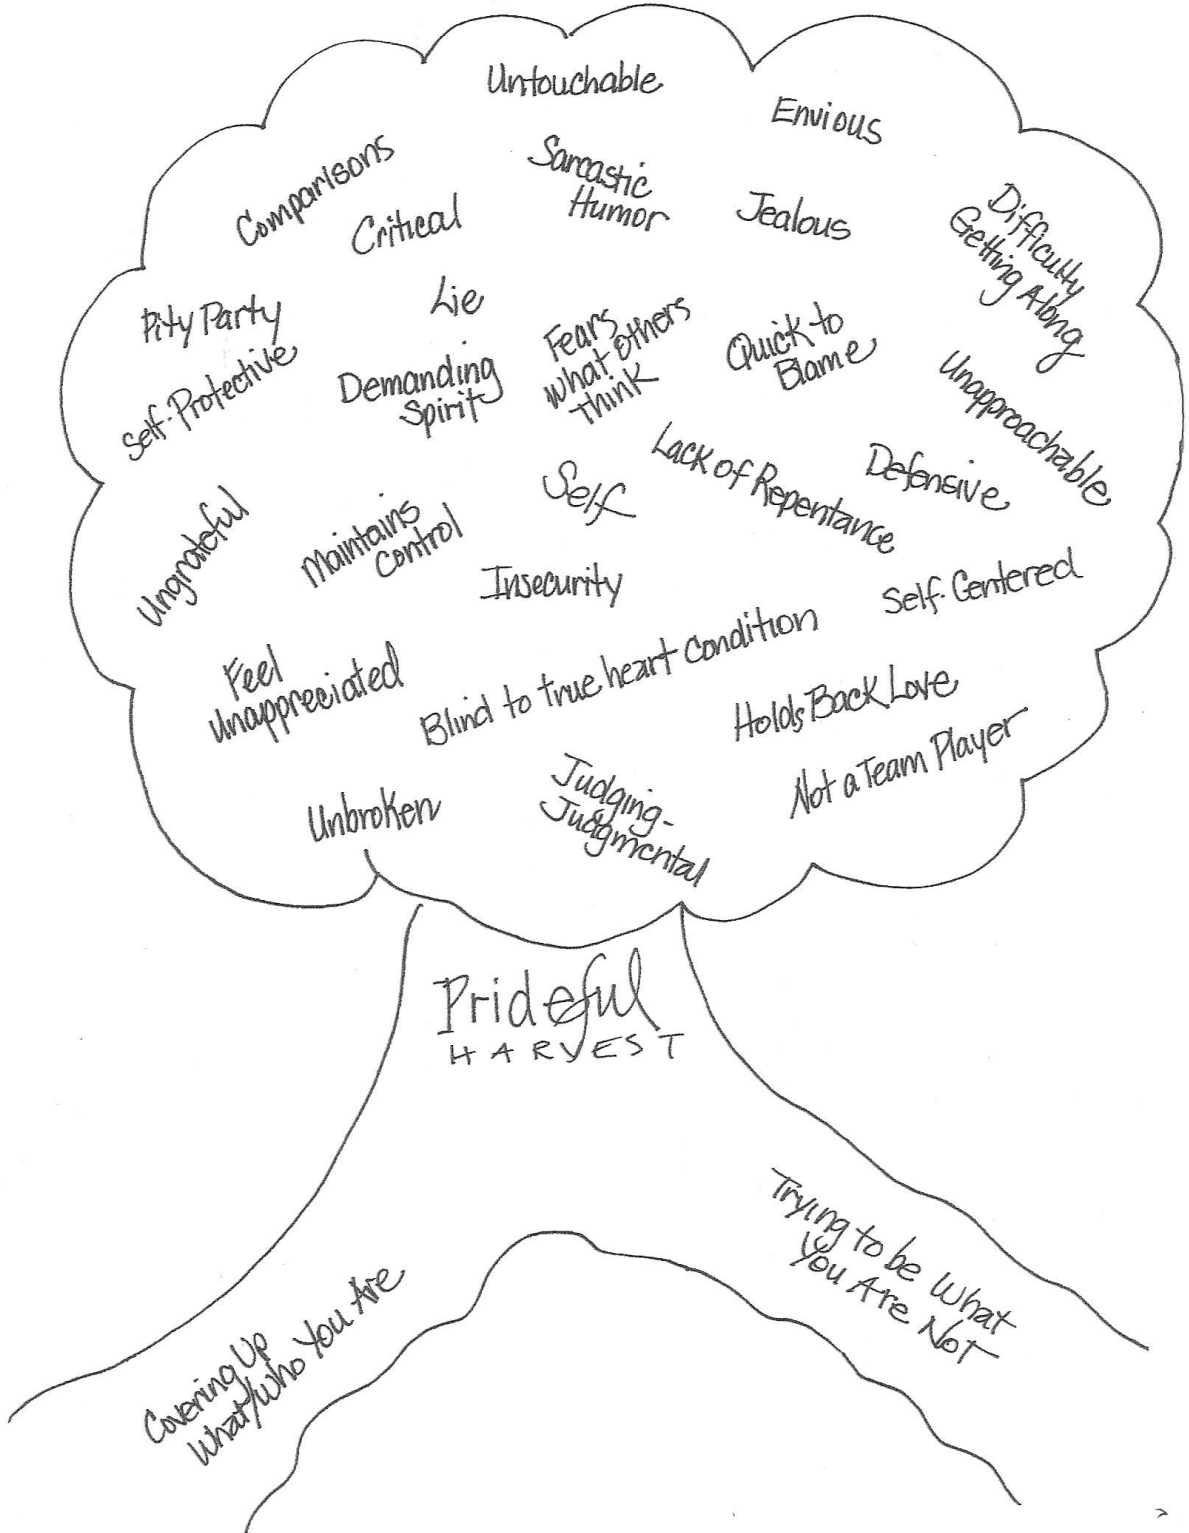 Untouchable
Envious
Comparisons
Sarcastic
Humor
Critical
Jealous
Difficulty
Getting Along
Pity Party
Lie
Fears
what others
think
Quick to
Blame
Self-Protective
Demanding
Spirit
Unapproachable
Lack of Repentance
Defensive
Self
Ungrateful
Maintains
Control
Insecurity
Self-Centered
Feel
Unappreciated
Blind to true heart condition
Holds Back Love
Not a Team Player
Unbroken
Judging-
Judgmental
Prideful
HARVEST
Trying to be What
You Are Not
Covering Up
What/Who You Are